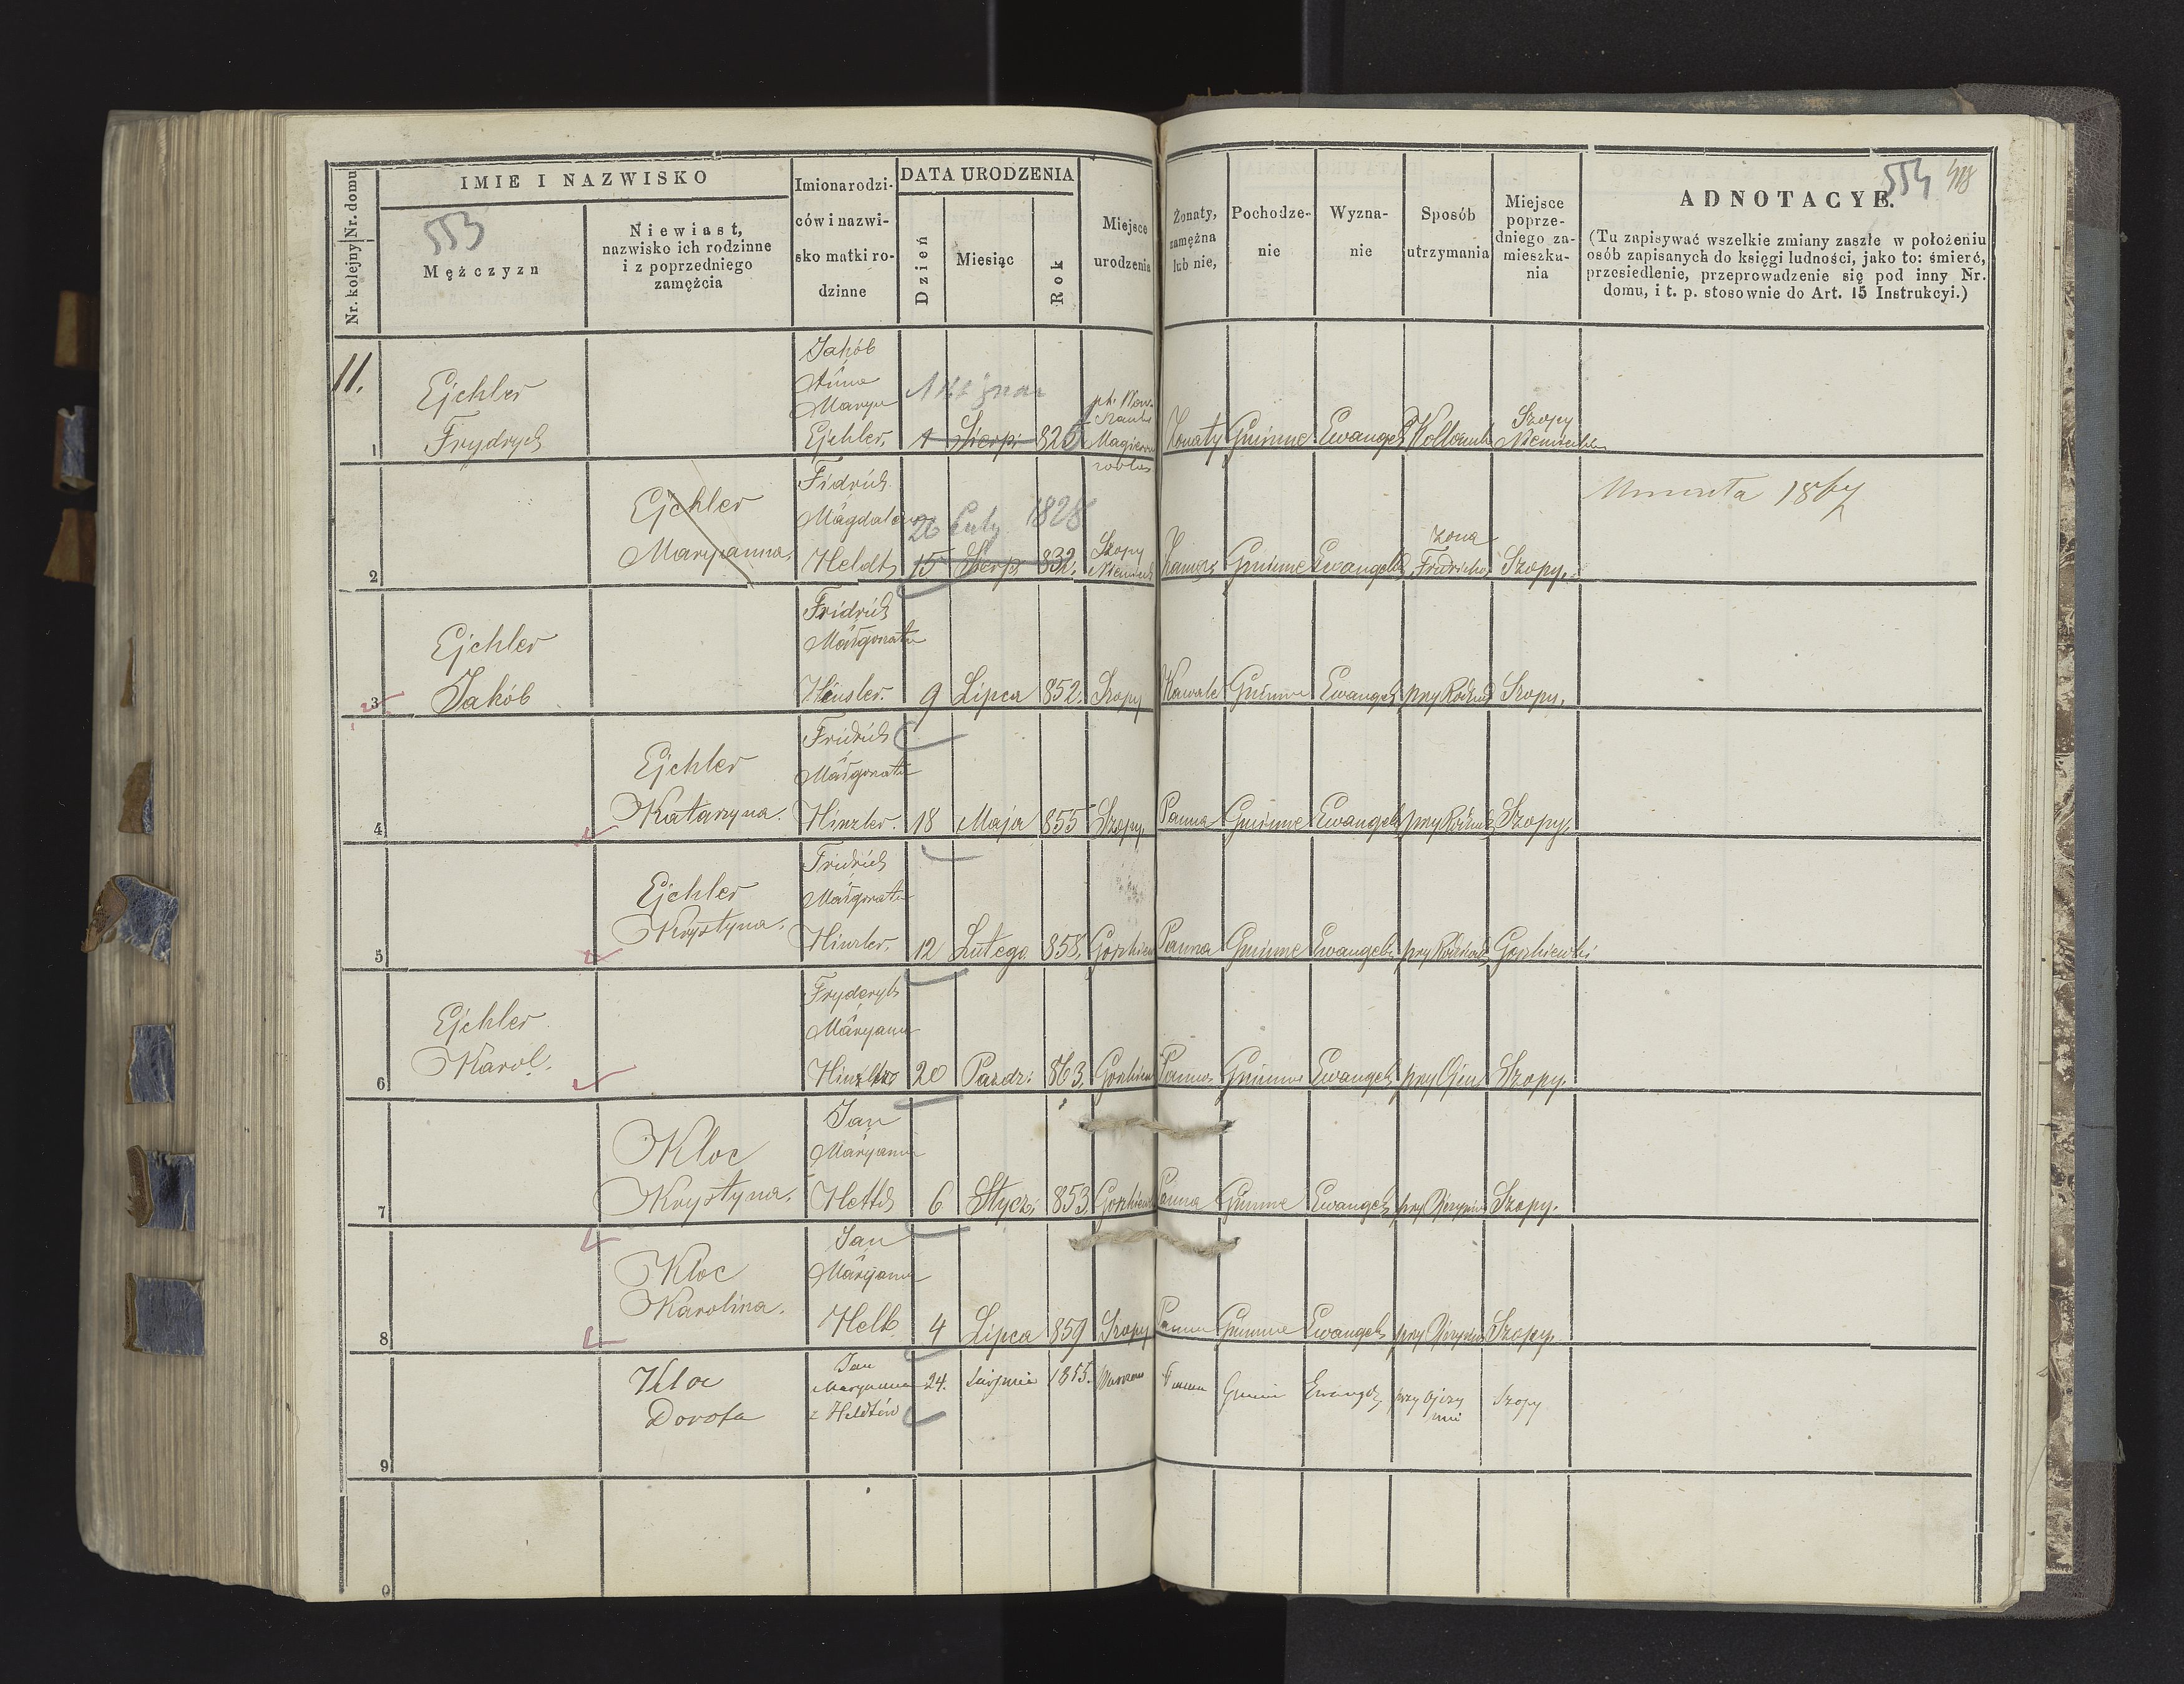 553
554
Nr. kolejny Nr. domu
IMIE I NAZWISKO
Mężczyzn
Niewiast,
nazwisko ich rodzinne
i z poprzedniego
zamężcia
Imiona rodzi-
ców i nazwi-
sko matki ro-
dzinne
DATA URODZENIA
Dzień
Miesiąc
Rok
Miejsce
urodzenia
Żonaty,
zamężna
lub nie,
Pochodze-
nie
Wyzna-
nie
Sposób
utrzymania
Miejsce
poprze-
dniego za-
mieszka-
nia
ADNOTACYE.
(Tu zapisywać wszelkie zmiany zaszłe w położeniu
osób zapisanych do księgi ludności, jako to: śmierć,
przesiedlenie, przeprowadzenie się pod inny Nr.
domu, i t. p. stosownie do Art. 15 Instrukcyi.)
11.
1
Ejchler
Frydrych
Jakób
Anna
Marya
Ejchler.
1 Sierp:
Żonaty Gminne Ewangel
Szopy
2
Ejchler
Maryanna.
Fidrich
Magdalena
Heldt
26 Luty 1828
15 Sierp: 832.
Szopy
Gminne Ewangel
żona
Fridricha
Szopy.
Umarła 1867
3
Ejchler
Jakób
Fridrich
Małgorzata
Hinsler.
9 Lipca 852. Szopy
Kawale Gminne Ewangel przy Rodzic Szopy.
4
Ejchler
Katarzyna.
Fridrich
Małgorzata
Hinzler.
18 Maja 855 Szopy.
Panna Gminne Ewangel przy Rodzic Szopy.
5
Ejchler
Krystyna.
Fridrich
Małgorzata
Hinzler.
12 Lutego 858.
Panna Gminne Ewangel przy Rodzic
6
Ejchler
Karol.
Fryderyk
Maryanna
20 Pazdz: 863.
Gminne Ewangel przy Ojcu Szopy.
7
Kloc
Krystyna.
Jan
Maryanna
6 Stycz: 853.
Panna Gminne Ewangel Szopy.
8
Kloc
Karolina.
Jan
Maryanna
4 Lipca 859 Szopy
Panna Gminne Ewangel Szopy.
9
Kloc
Dorota
Jan
Maryanna
z Heldtów
24. 1855.
Panna Gmin Ewangel. przy Ojczy
mie
Szopy
0